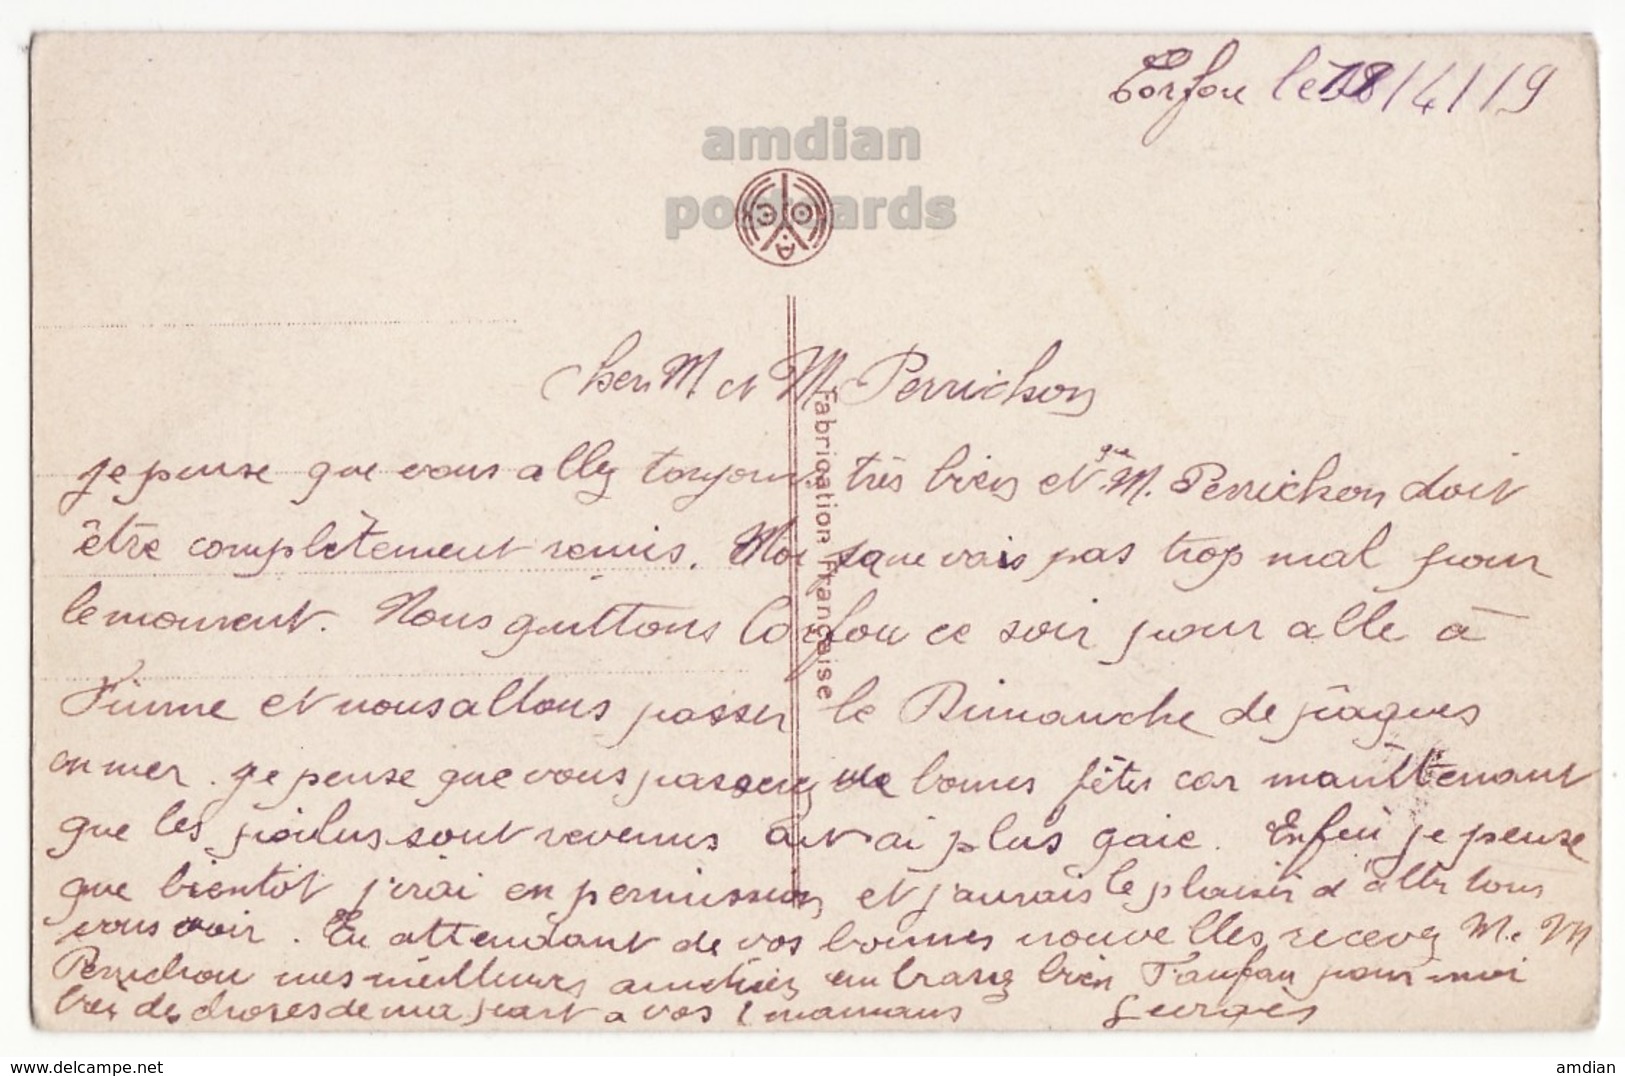 Corfou le 18/4/19
amdian
postcards
Cher M et Me Perrichon
Fabrication Française
je pense que vous allez toujours très bien et que M. Perrichon doit
être complètement remis. Moi ça ne vais pas trop mal pour
le moment. Nous quittons Corfou ce soir pour alle à
Fiume et nous allons passer le Dimanche de pâques
en mer. je pense que vous passerez de bonnes fêtes car maintenant
que les poilus sont revenus plus gaie. Enfin je pense
que bientôt j'irai en permission et j'aurais le plaisir d'aller tous
vous voir. En attendant de vos bonnes nouvelles recevez M. Me
Perrichon mes meilleurs amitiés embrassez bien Fanfan pour moi
bien des choses de ma part a vos 2 mamans Georges
amdian
www.delcampe.net